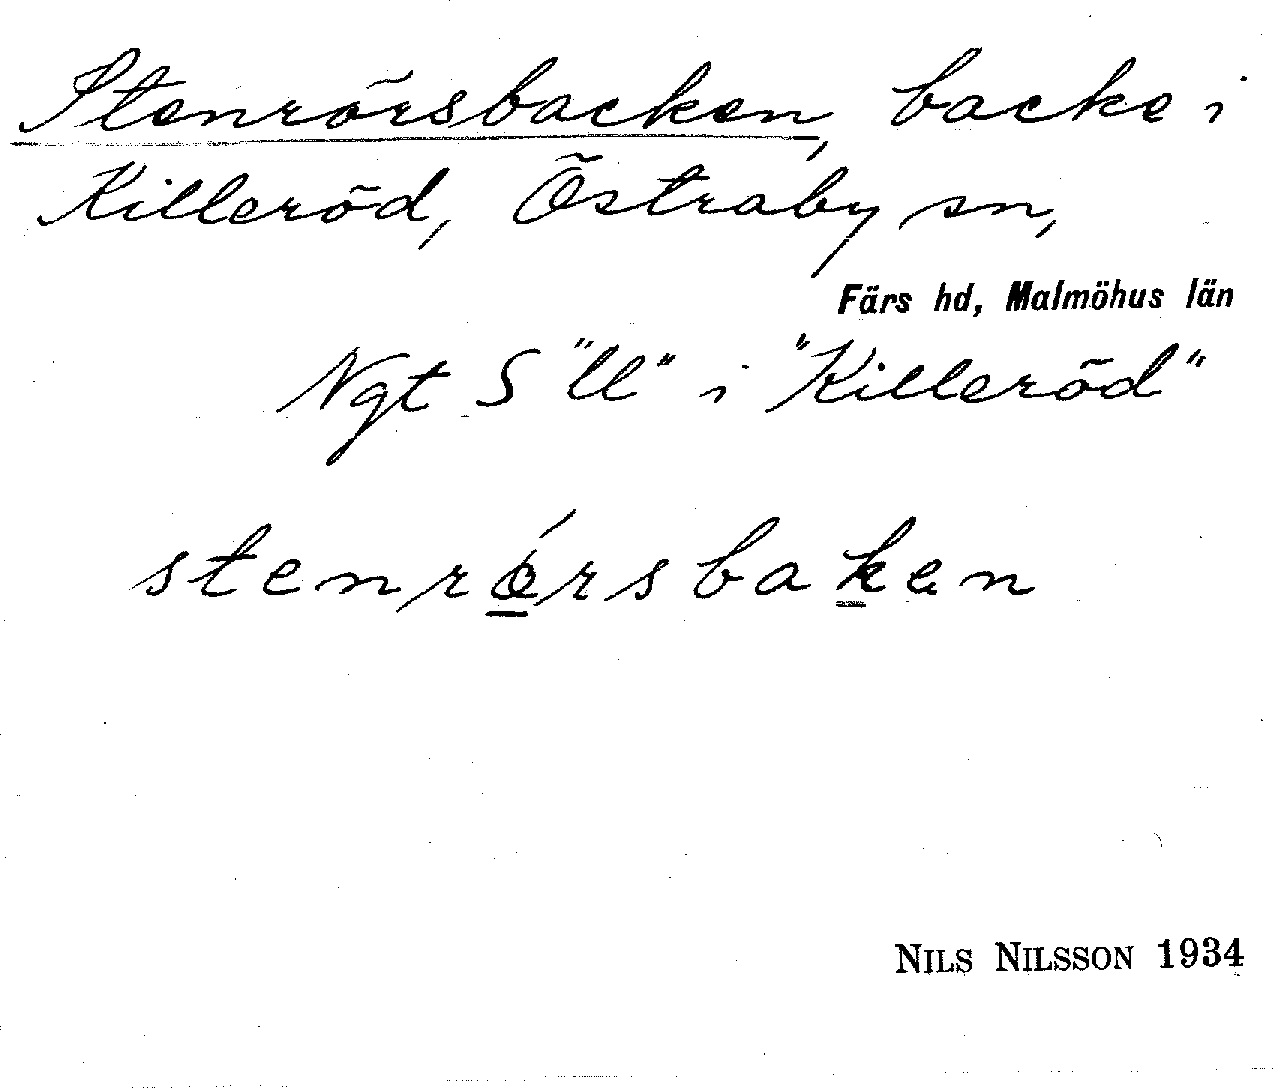 Stenrörsbacken, backe i
Killeröd, Östraby sn,
Färs hd, Malmöhus län
Ngt S "ll" i "Killeröd"
stenrǿrsbaken
NILS NILSSON 1934